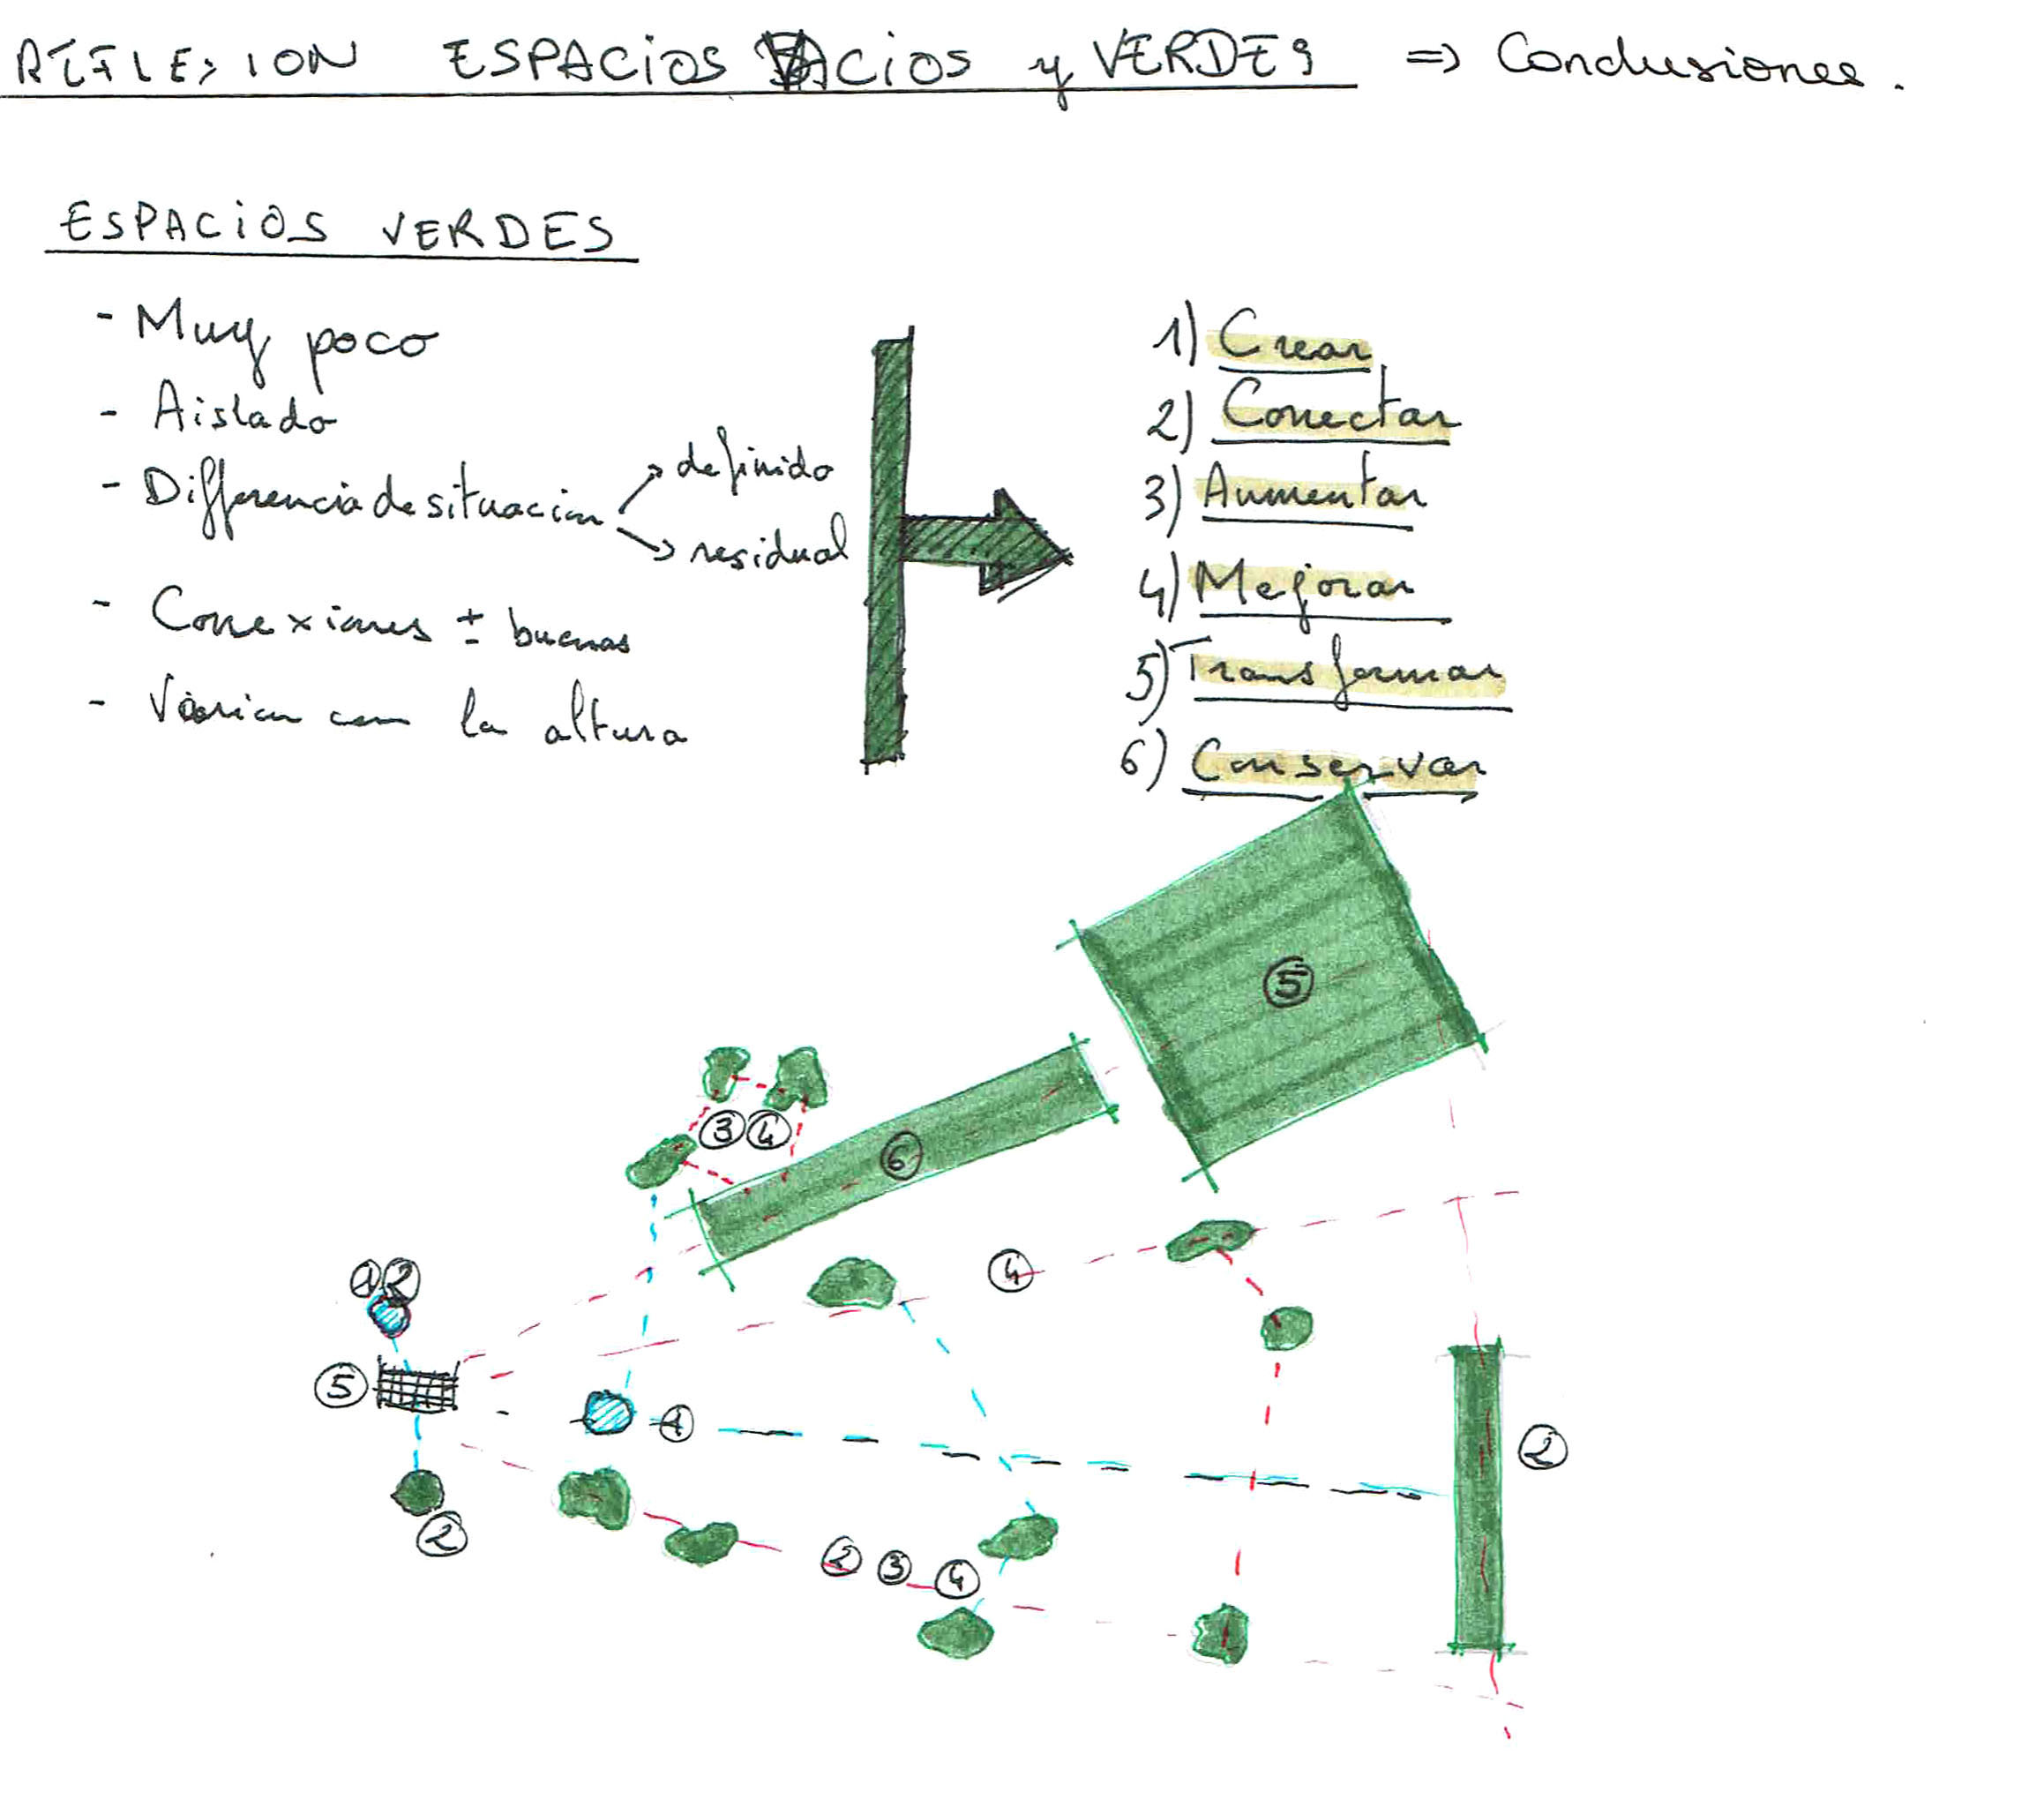 REFLEXION ESPACIOS VACIOS y VERDES => Conclusiones.
ESPACIOS VERDES
- Muy poco
- Aislado
- Differencia de situacion → definido
→ residual
- Conexiones ± buenas
- Varian con la altura
1) Crear
2) Conectar
3) Aumentar
4) Mejorar
5) Transformar
6) Conservar
5
3 4
6
1 2
4
5
1
2
2
2 3 4